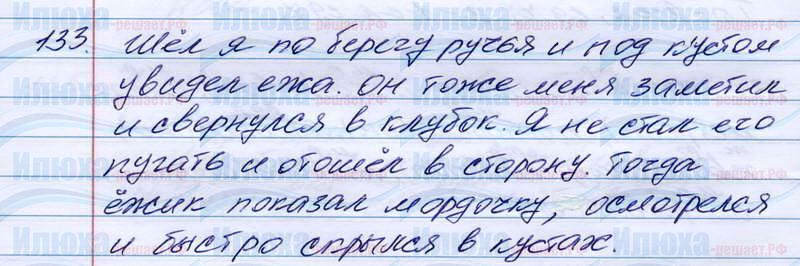 133. Шёл я по берегу ручья и под кустом
увидел ежа. Он тоже меня заметил
и свернулся в клубок. Я не стал его
пугать и отошёл в сторону. Тогда
ёжик показал мордочку, осмотрелся
и быстро скрылся в кустах.